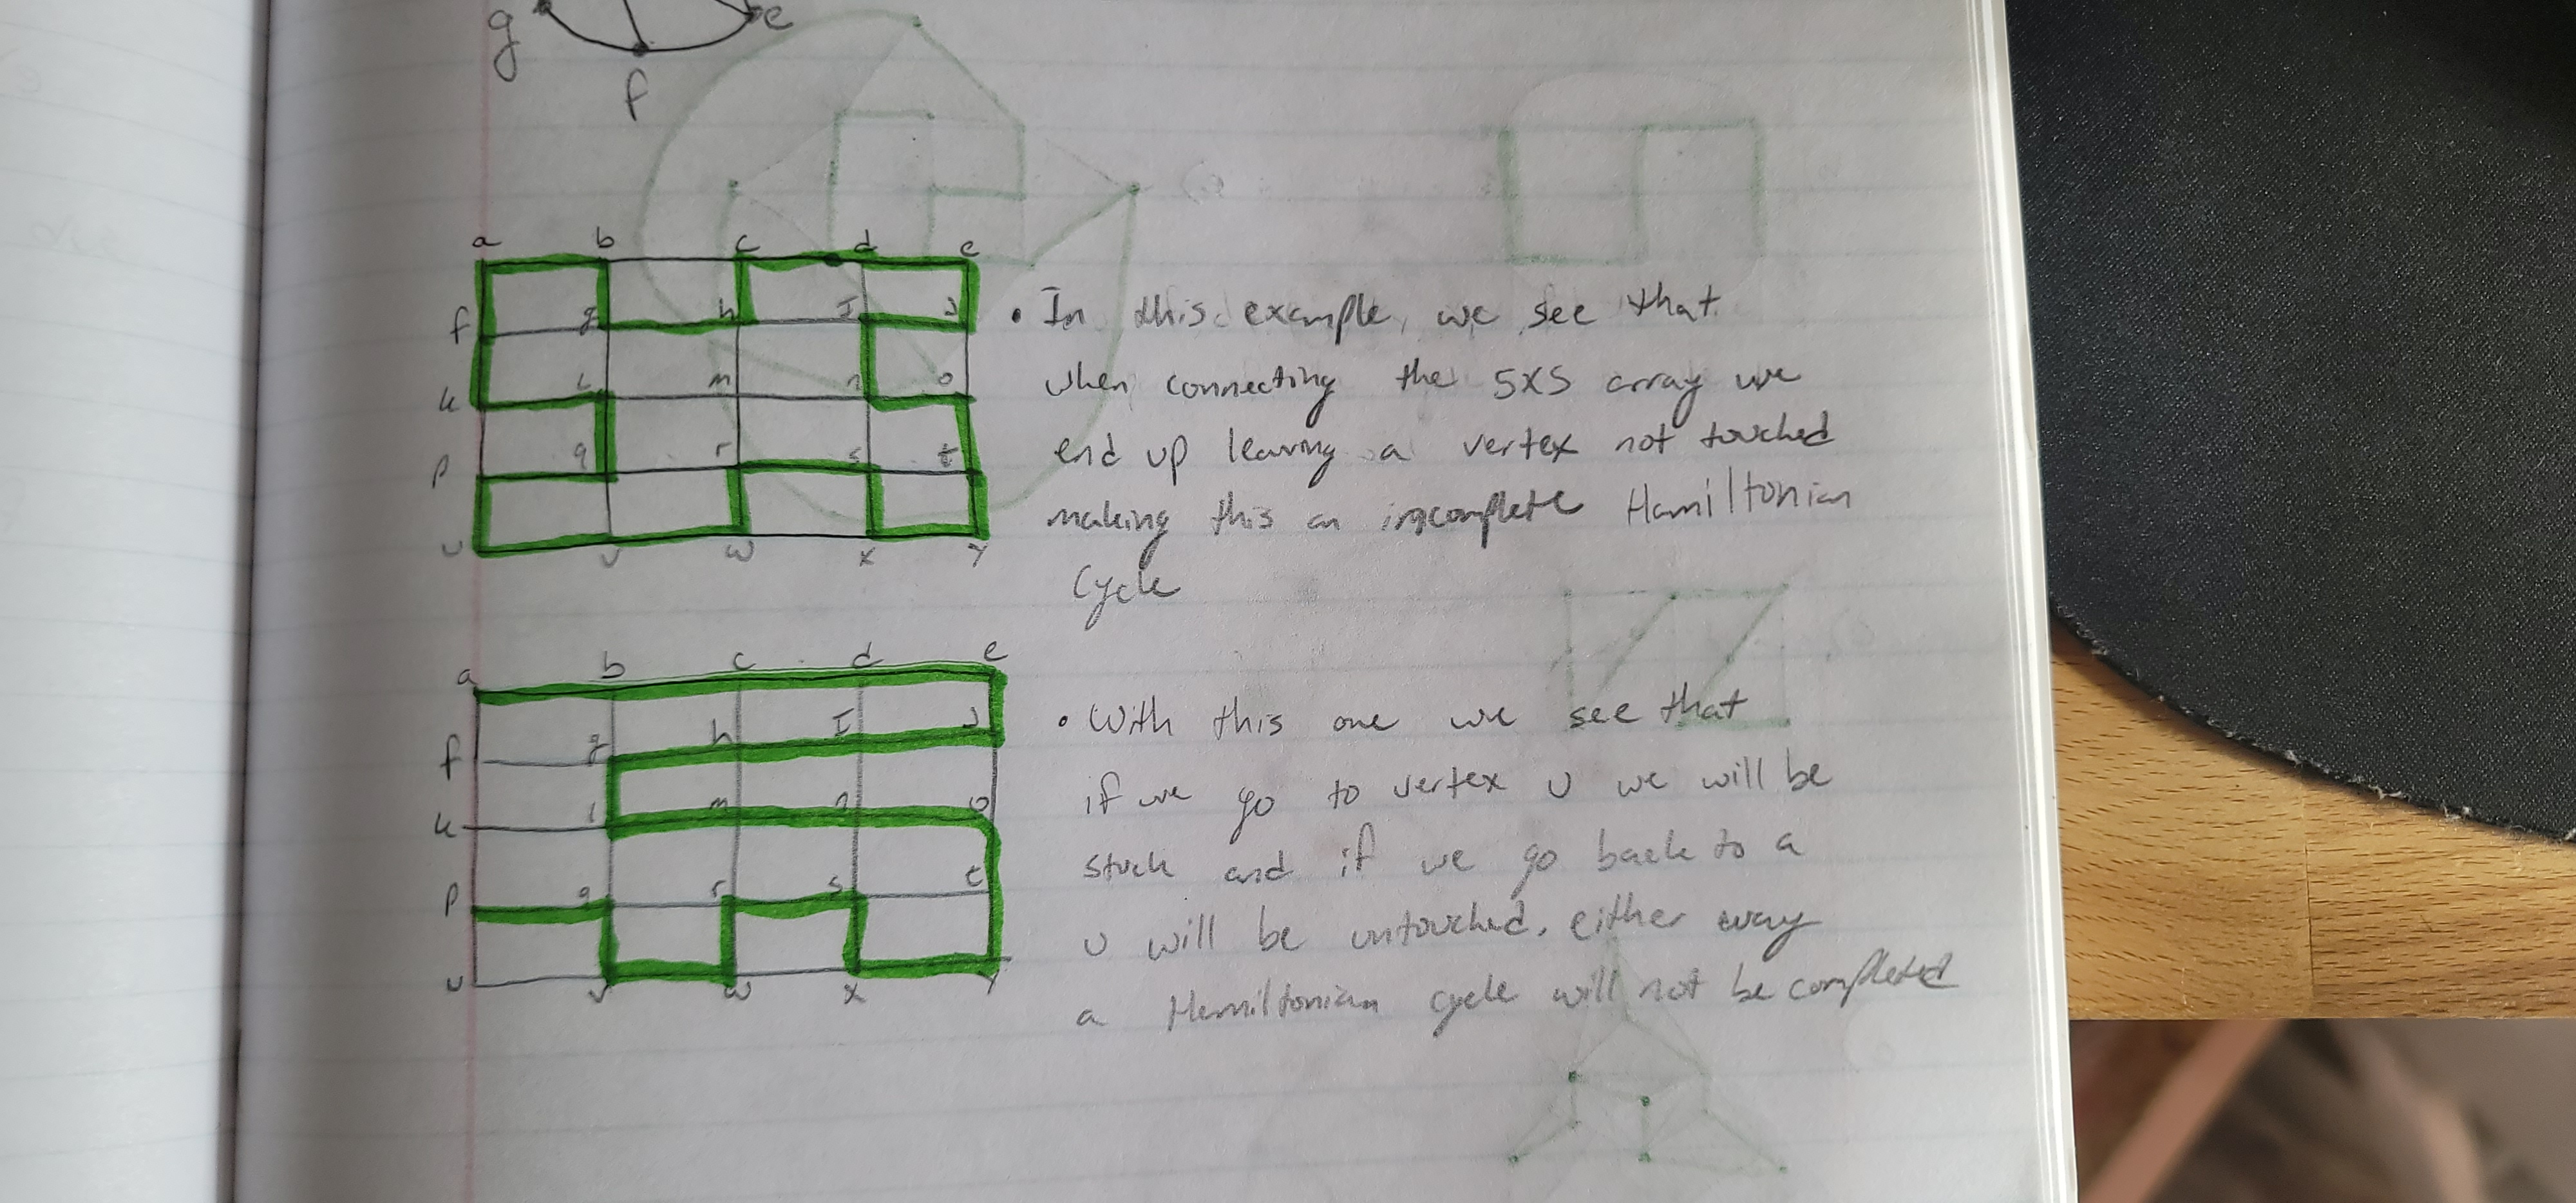 g
f
e
a b c d e
f g h I J
k L m n o
p q r s t
u v w x y
• In this example, we see that
when connecting the 5x5 array we
end up leaving a vertex not touched
making this an incomplete Hamiltonian
Cycle
a b c d e
f g h I J
k l m n o
p q r s t
u v w x y
• With this one we see that
if we go to vertex u we will be
stuck and if we go back to a
u will be untouched, either way
a Hamiltonian cycle will not be completed